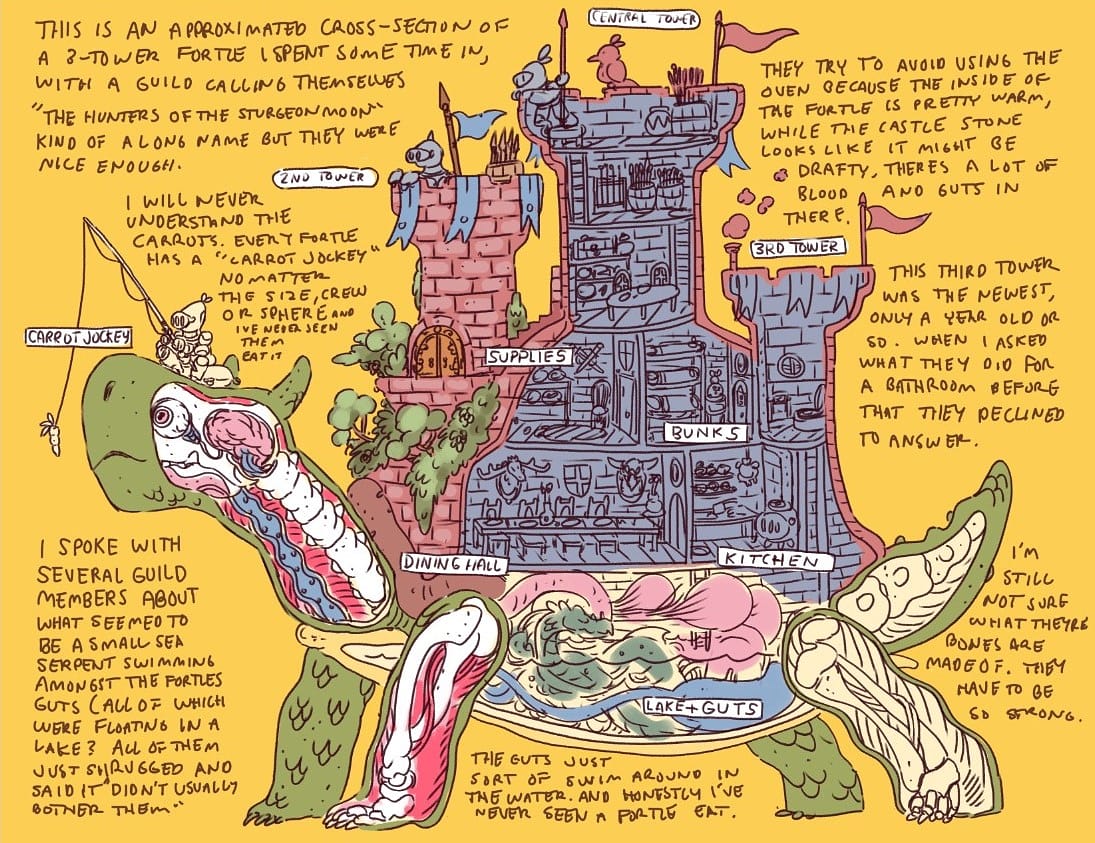 THIS IS AN APPROXIMATED CROSS-SECTION OF
A 3-TOWER FORTLE I SPENT SOME TIME IN,
WITH A GUILD CALLING THEMSELVES
"THE HUNTERS OF THE STURGEON MOON"
KIND OF A LONG NAME BUT THEY WERE
NICE ENOUGH.
CENTRAL TOWER
THEY TRY TO AVOID USING THE
OVEN BECAUSE THE INSIDE OF
THE FORTLE IS PRETTY WARM,
WHILE THE CASTLE STONE
LOOKS LIKE IT MIGHT BE
DRAFTY, THERES A LOT OF
BLOOD AND GUTS IN
THERE.
2ND TOWER
I WILL NEVER
UNDERSTAND THE
CARROTS. EVERY FORTLE
HAS A "CARROT JOCKEY"
NO MATTER
THE SIZE, CREW
OR SPHERE AND
I'VE NEVER SEEN
THEM
EAT IT
3RD TOWER
CARROT JOCKEY
THIS THIRD TOWER
WAS THE NEWEST,
ONLY A YEAR OLD OR
SO. WHEN I ASKED
WHAT THEY DID FOR
A BATHROOM BEFORE
THAT THEY DECLINED
TO ANSWER.
SUPPLIES
BUNKS
DINING HALL
KITCHEN
I SPOKE WITH
SEVERAL GUILD
MEMBERS ABOUT
WHAT SEEMED TO
BE A SMALL SEA
SERPENT SWIMMING
AMONGST THE FORTLES
GUTS (ALL OF WHICH
WERE FLOATING IN A
LAKE? ALL OF THEM
JUST SHRUGGED AND
SAID IT "DIDN'T USUALLY
BOTHER THEM"
I'M
STILL
NOT SURE
WHAT THEYRE
BONES ARE
MADE OF. THEY
HAVE TO BE
SO STRONG.
LAKE+GUTS
THE GUTS JUST
SORT OF SWIM AROUND IN
THE WATER. AND HONESTLY I'VE
NEVER SEEN A FORTLE EAT.